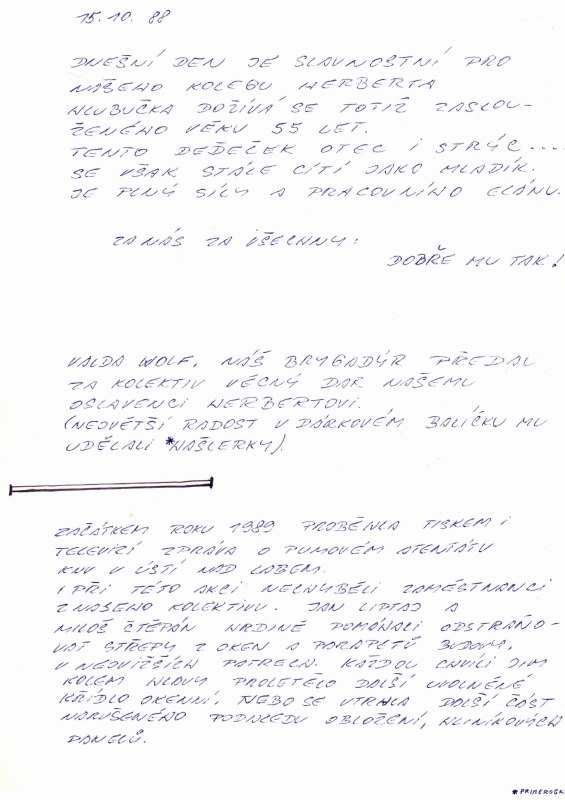 15.10.88
DNEŠNÍ DEN JE SLAVNOSTNÍ PRO
NAŠEHO KOLEGU HERBERTA
HLUBUČKA DOŽÍVÁ SE TOTIŽ ZASLOU-
ŽENÉHO VĚKU 55 LET.
TENTO DEDEČEK OTEC I STRÝC....
SE VŠAK STÁLE CÍTÍ JAKO MLADÍK.
JE PLNÝ SÍLY A PRACOVNÍHO ELÁNU.
ZA NÁS ZA VŠECHNY:
DOBŘE MU TAK!
VALDA WOLF, NÁŠ BRYGADÝR PŘEDAL
ZA KOLEKTIV VĚCNÝ DAR NAŠEMU
OSLAVENCI HERBERTOVI.
(NEJVĚTŠÍ RADOST V DÁRKOVÉM BALÍČKU MU
UDĚLALI *HAŠLERKY).
ZAČÁTKEM ROKU 1989 PROBĚHLA TISKEM I
TELEVIZÍ ZPRÁVA O PUMOVÉM ATENTÁTU
KNV V ÚSTÍ NAD LABEM.
I PŘI TÉTO AKCI NECHYBĚLI ZAMĚSTNANCI
Z NAŠEHO KOLEKTIVU. JAN LIPTAJ A
MILOŠ ŠTĚPÁN HRDINĚ POMÁHALI ODSTRAŇO-
VAT STŘEPY Z OKEN A PARAPETŮ BUDOVY,
V NEJVIŽŠÍCH PATRECH. KAŽDOU CHVÍLI JIM
KOLEM HLAVY PROLETĚLO DALŠÍ UVOLNĚNÉ
KŘÍDLO OKENNÍ, NEBO SE UTRHLA DALŠÍ ČÁST
NARUŠENÉHO PODHLEDU OBLOŽENÍ, HLINÍKOVÝCH
PANELŮ.
*PRIMEROSK